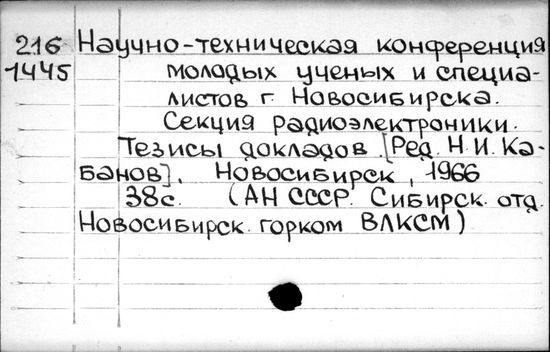 216 Научно-техническая конференция
1445 молодых ученых и специа-
листов г. Новосибирска.
Секция радиоэлектроники.
Тезисы докладов. [Ред. Н.И. Ка-
банов]. Новосибирск, 1966
38с. (АН СССР. Сибирск. отд.
Новосибирск. горком ВЛКСМ)